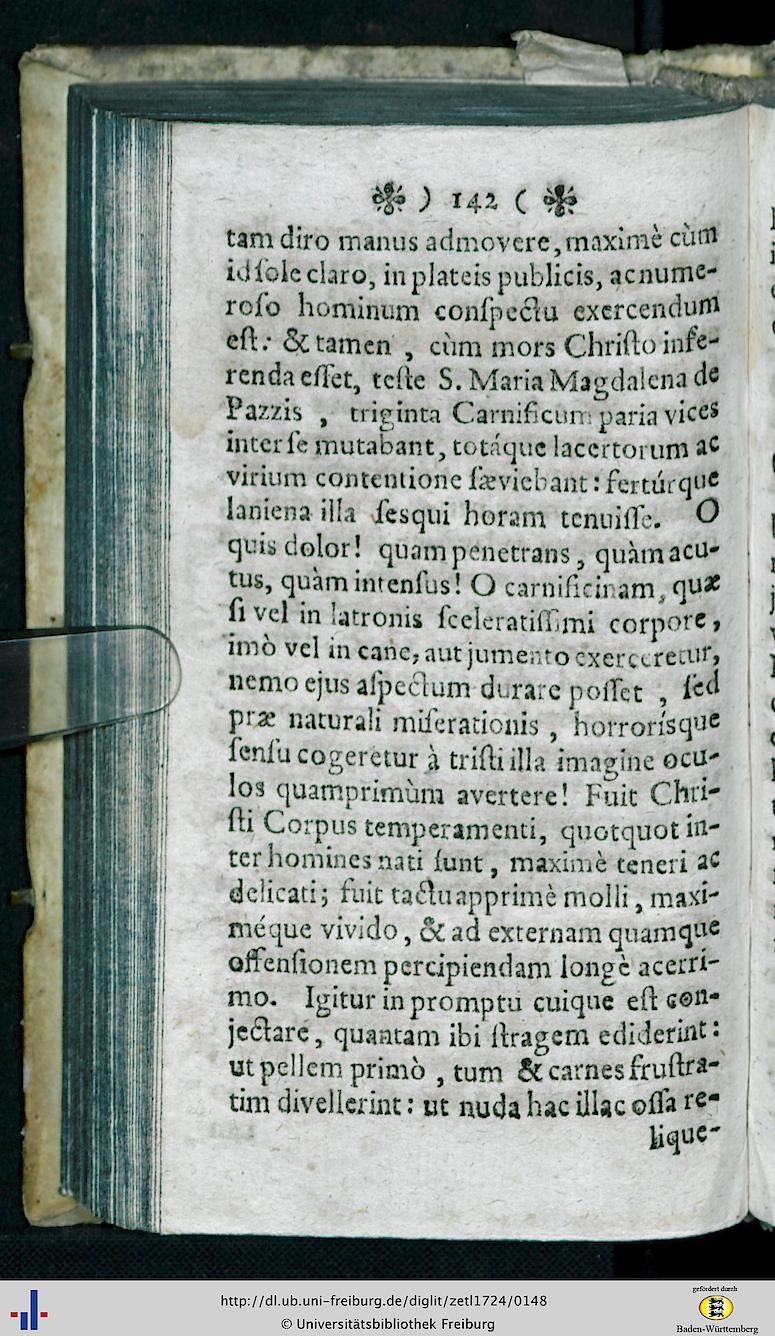 ❧ ) 142 ( ❧
tam diro manus admovere, maximè cùm
id ſole claro, in plateis publicis, ac nume-
roſo hominum conſpectu exercendum
eſt: & tamen , cùm mors Chriſto infe-
renda eſſet, teſte S. Maria Magdalena de
Pazzis , triginta Carnificum paria vices
inter ſe mutabant, totáque lacertorum ac
virium contentione ſæviebant: fertúrque
laniena illa ſesqui horam tenuiſſe. O
quis dolor! quam penetrans, quàm acu-
tus, quàm intenſus! O carnificinam, quæ
ſi vel in latronis ſceleratiſſimi corpore,
imò vel in cane, aut jumento exerceretur,
nemo ejus aſpectum durare poſſet , ſed
præ naturali miſerationis , horrorísque
ſenſu cogeretur à triſti illa imagine ocu-
los quamprimùm avertere! Fuit Chri-
ſti Corpus temperamenti, quotquot in-
ter homines nati ſunt, maximè teneri ac
delicati; fuit tactu apprimè molli, maxi-
méque vivido, & ad externam quamque
offenſionem percipiendam longè acerri-
mo. Igitur in promptu cuique eſt con-
jectare, quantam ibi ſtragem ediderint:
ut pellem primò , tum & carnes fruſtra-
tim divellerint: ut nuda hac illac oſſa re-
lique-
http://dl.ub.uni-freiburg.de/diglit/zetl1724/0148
© Universitätsbibliothek Freiburg
gefördert durch
Baden-Württemberg